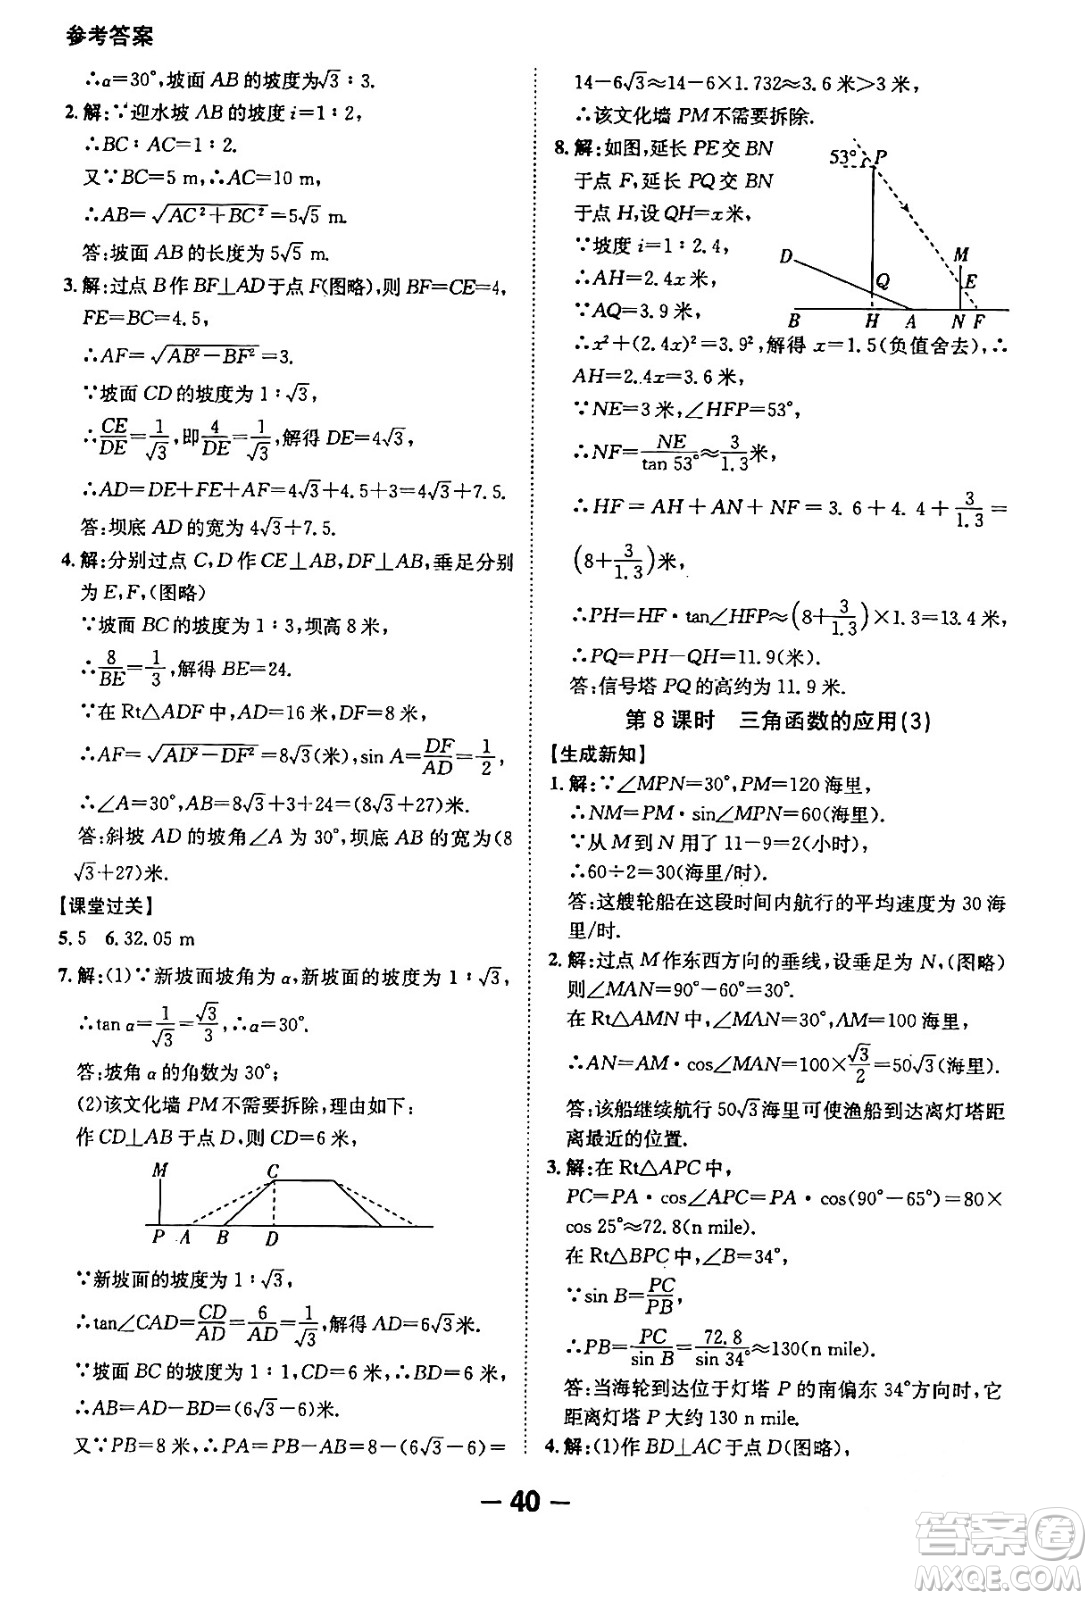 参考答案
∴α=30°,坡面 AB 的坡度为√3∶3.
2.解:∵迎水坡 AB 的坡度 i=1∶2,
∴BC∶AC=1∶2.
又∵BC=5 m,∴AC=10 m,
∴AB=√(AC²+BC²)=5√5 m.
答:坡面 AB 的长度为 5√5 m.
3.解:过点 B 作 BF⊥AD 于点 F(图略),则 BF=CE=4,
FE=BC=4.5,
∴AF=√(AB²−BF²)=3.
∵坡面 CD 的坡度为 1∶√3,
∴CE/DE=1/√3,即4/DE=1/√3,解得 DE=4√3,
∴AD=DE+FE+AF=4√3+4.5+3=4√3+7.5.
答:坝底 AD 的宽为 4√3+7.5.
4.解:分别过点 C,D 作 CE⊥AB,DF⊥AB,垂足分别
为 E,F,(图略)
∵坡面 BC 的坡度为 1∶3,坝高 8 米,
∴8/BE=1/3,解得 BE=24.
∵在 Rt△ADF 中,AD=16 米,DF=8 米,
∴AF=√(AD²−DF²)=8√3(米),sin A=DF/AD=1/2,
∴∠A=30°,AB=8√3+3+24=(8√3+27)米.
答:斜坡 AD 的坡角∠A 为 30°,坝底 AB 的宽为(8
√3+27)米.
【课堂过关】
5.5 6.32.05 m
7.解:(1)∵新坡面坡角为 α,新坡面的坡度为 1∶√3,
∴tan α=1/√3=√3/3,∴α=30°.
答:坡角 α 的角数为 30°;
(2)该文化墙 PM 不需要拆除,理由如下:
作 CD⊥AB 于点 D,则 CD=6 米,
M C
P A B D
∵新坡面的坡度为 1∶√3,
∴tan∠CAD=CD/AD=6/AD=1/√3,解得 AD=6√3米.
∵坡面 BC 的坡度为 1∶1,CD=6 米,∴BD=6 米,
∴AB=AD−BD=(6√3−6)米.
又∵PB=8 米,∴PA=PB−AB=8−(6√3−6)=
14−6√3≈14−6×1.732≈3.6 米>3 米,
∴该文化墙 PM 不需要拆除.
8.解:如图,延长 PE交 BN
于点 F,延长 PQ 交 BN
于点 H,设 QH=x 米,
∵坡度 i=1∶2.4,
∴AH=2.4x 米,
∵AQ=3.9 米,
53° P
D M
Q E
B H A N F
∴x²+(2.4x)²=3.9²,解得 x=1.5(负值舍去),∴
AH=2.4x=3.6 米,
∵NE=3 米,∠HFP=53°,
∴NF=NE/tan 53°≈3/1.3米,
∴HF=AH+AN+NF=3.6+4.4+3/1.3=
(8+3/1.3)米,
∴PH=HF·tan∠HFP≈(8+3/1.3)×1.3=13.4 米,
∴PQ=PH−QH=11.9(米).
答:信号塔 PQ 的高约为 11.9 米.
第 8 课时 三角函数的应用(3)
【生成新知】
1.解:∵∠MPN=30°,PM=120 海里,
∴NM=PM·sin∠MPN=60(海里).
∵从 M 到 N 用了 11−9=2(小时),
∴60÷2=30(海里/时).
答:这艘轮船在这段时间内航行的平均速度为 30 海
里/时.
2.解:过点 M 作东西方向的垂线,设垂足为 N,(图略)
则∠MAN=90°−60°=30°.
在 Rt△AMN 中,∠MAN=30°,AM=100 海里,
∴AN=AM·cos∠MAN=100×√3/2=50√3(海里).
答:该船继续航行 50√3 海里可使渔船到达离灯塔距
离最近的位置.
3.解:在 Rt△APC 中,
PC=PA·cos∠APC=PA·cos(90°−65°)=80×
cos 25°≈72.8(n mile).
在 Rt△BPC 中,∠B=34°,
∵sin B=PC/PB,
∴PB=PC/sin B=72.8/sin 34°≈130(n mile).
答:当海轮到达位于灯塔 P 的南偏东 34°方向时,它
距离灯塔 P 大约 130 n mile.
4.解:(1)作 BD⊥AC 于点 D(图略),
— 40 —
答案卷
MXQE.COM